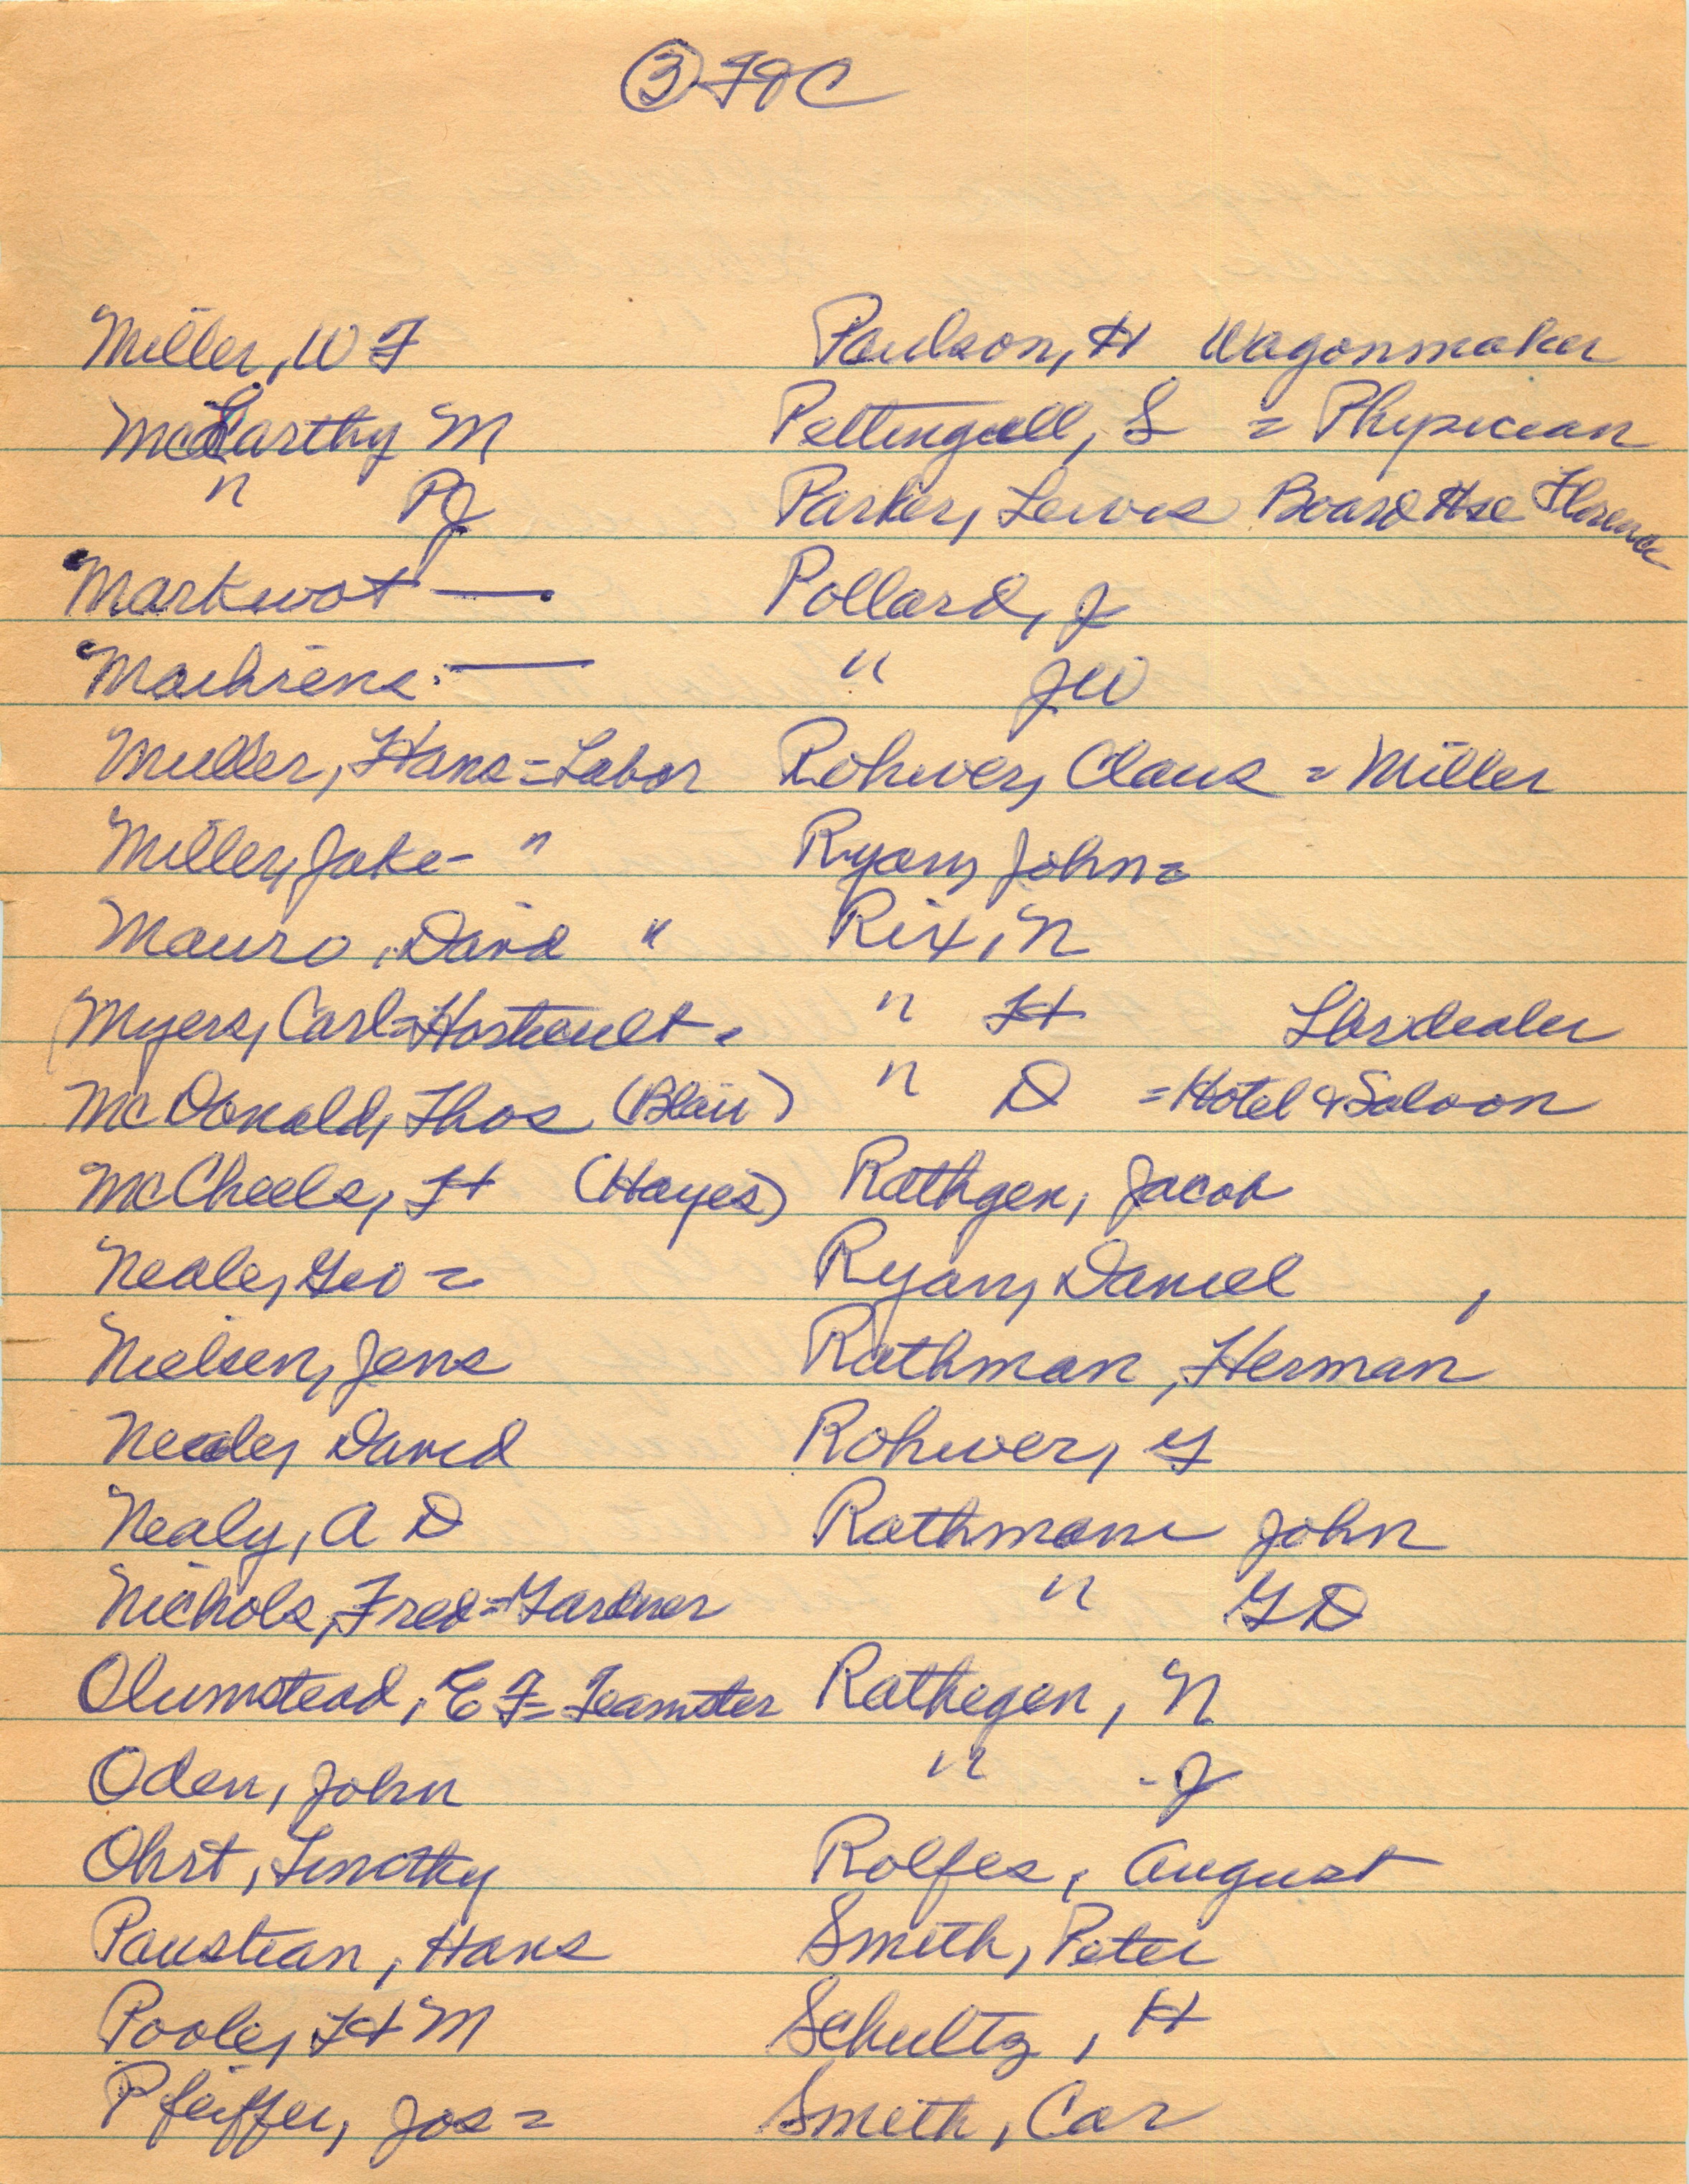 ③ FOC
Miller, W F
McCarthy M
" PJ
Markwot —
Machiens. —
Muller, Hans = Labor
Miller, Jake - "
Mauro, David "
Myers, Carl = Horticult -
McDonald, Thos (Blair)
McCheels, H (Hayes)
Neale, Geo =
Nielsen, Jens
Neale, David
Nealy, A D
Nichols, Fred = Gardner
Olumstead, E F = Teamster
Oden, John
Ohrt, Timothy
Paustian, Hans
Poole, H M
Pfeiffer, Jos =
Paulson, H Wagonmaker
Pettingell, S = Physician
Parker, Lewis Board Hse Florence
Pollard, J
" JW
Rohwer, Claus = Miller
Ryan, John =
Rix, N
" H
" D = Hotel & Saloon
Rathgen, Jacob
Ryan, Daniel ,
Rathman, Herman
Rohwer, G
Rathmann John
" G D
Rathegen, N
" - J
Rolfes, August
Smith, Peter
Schultz, H
Smith, Car